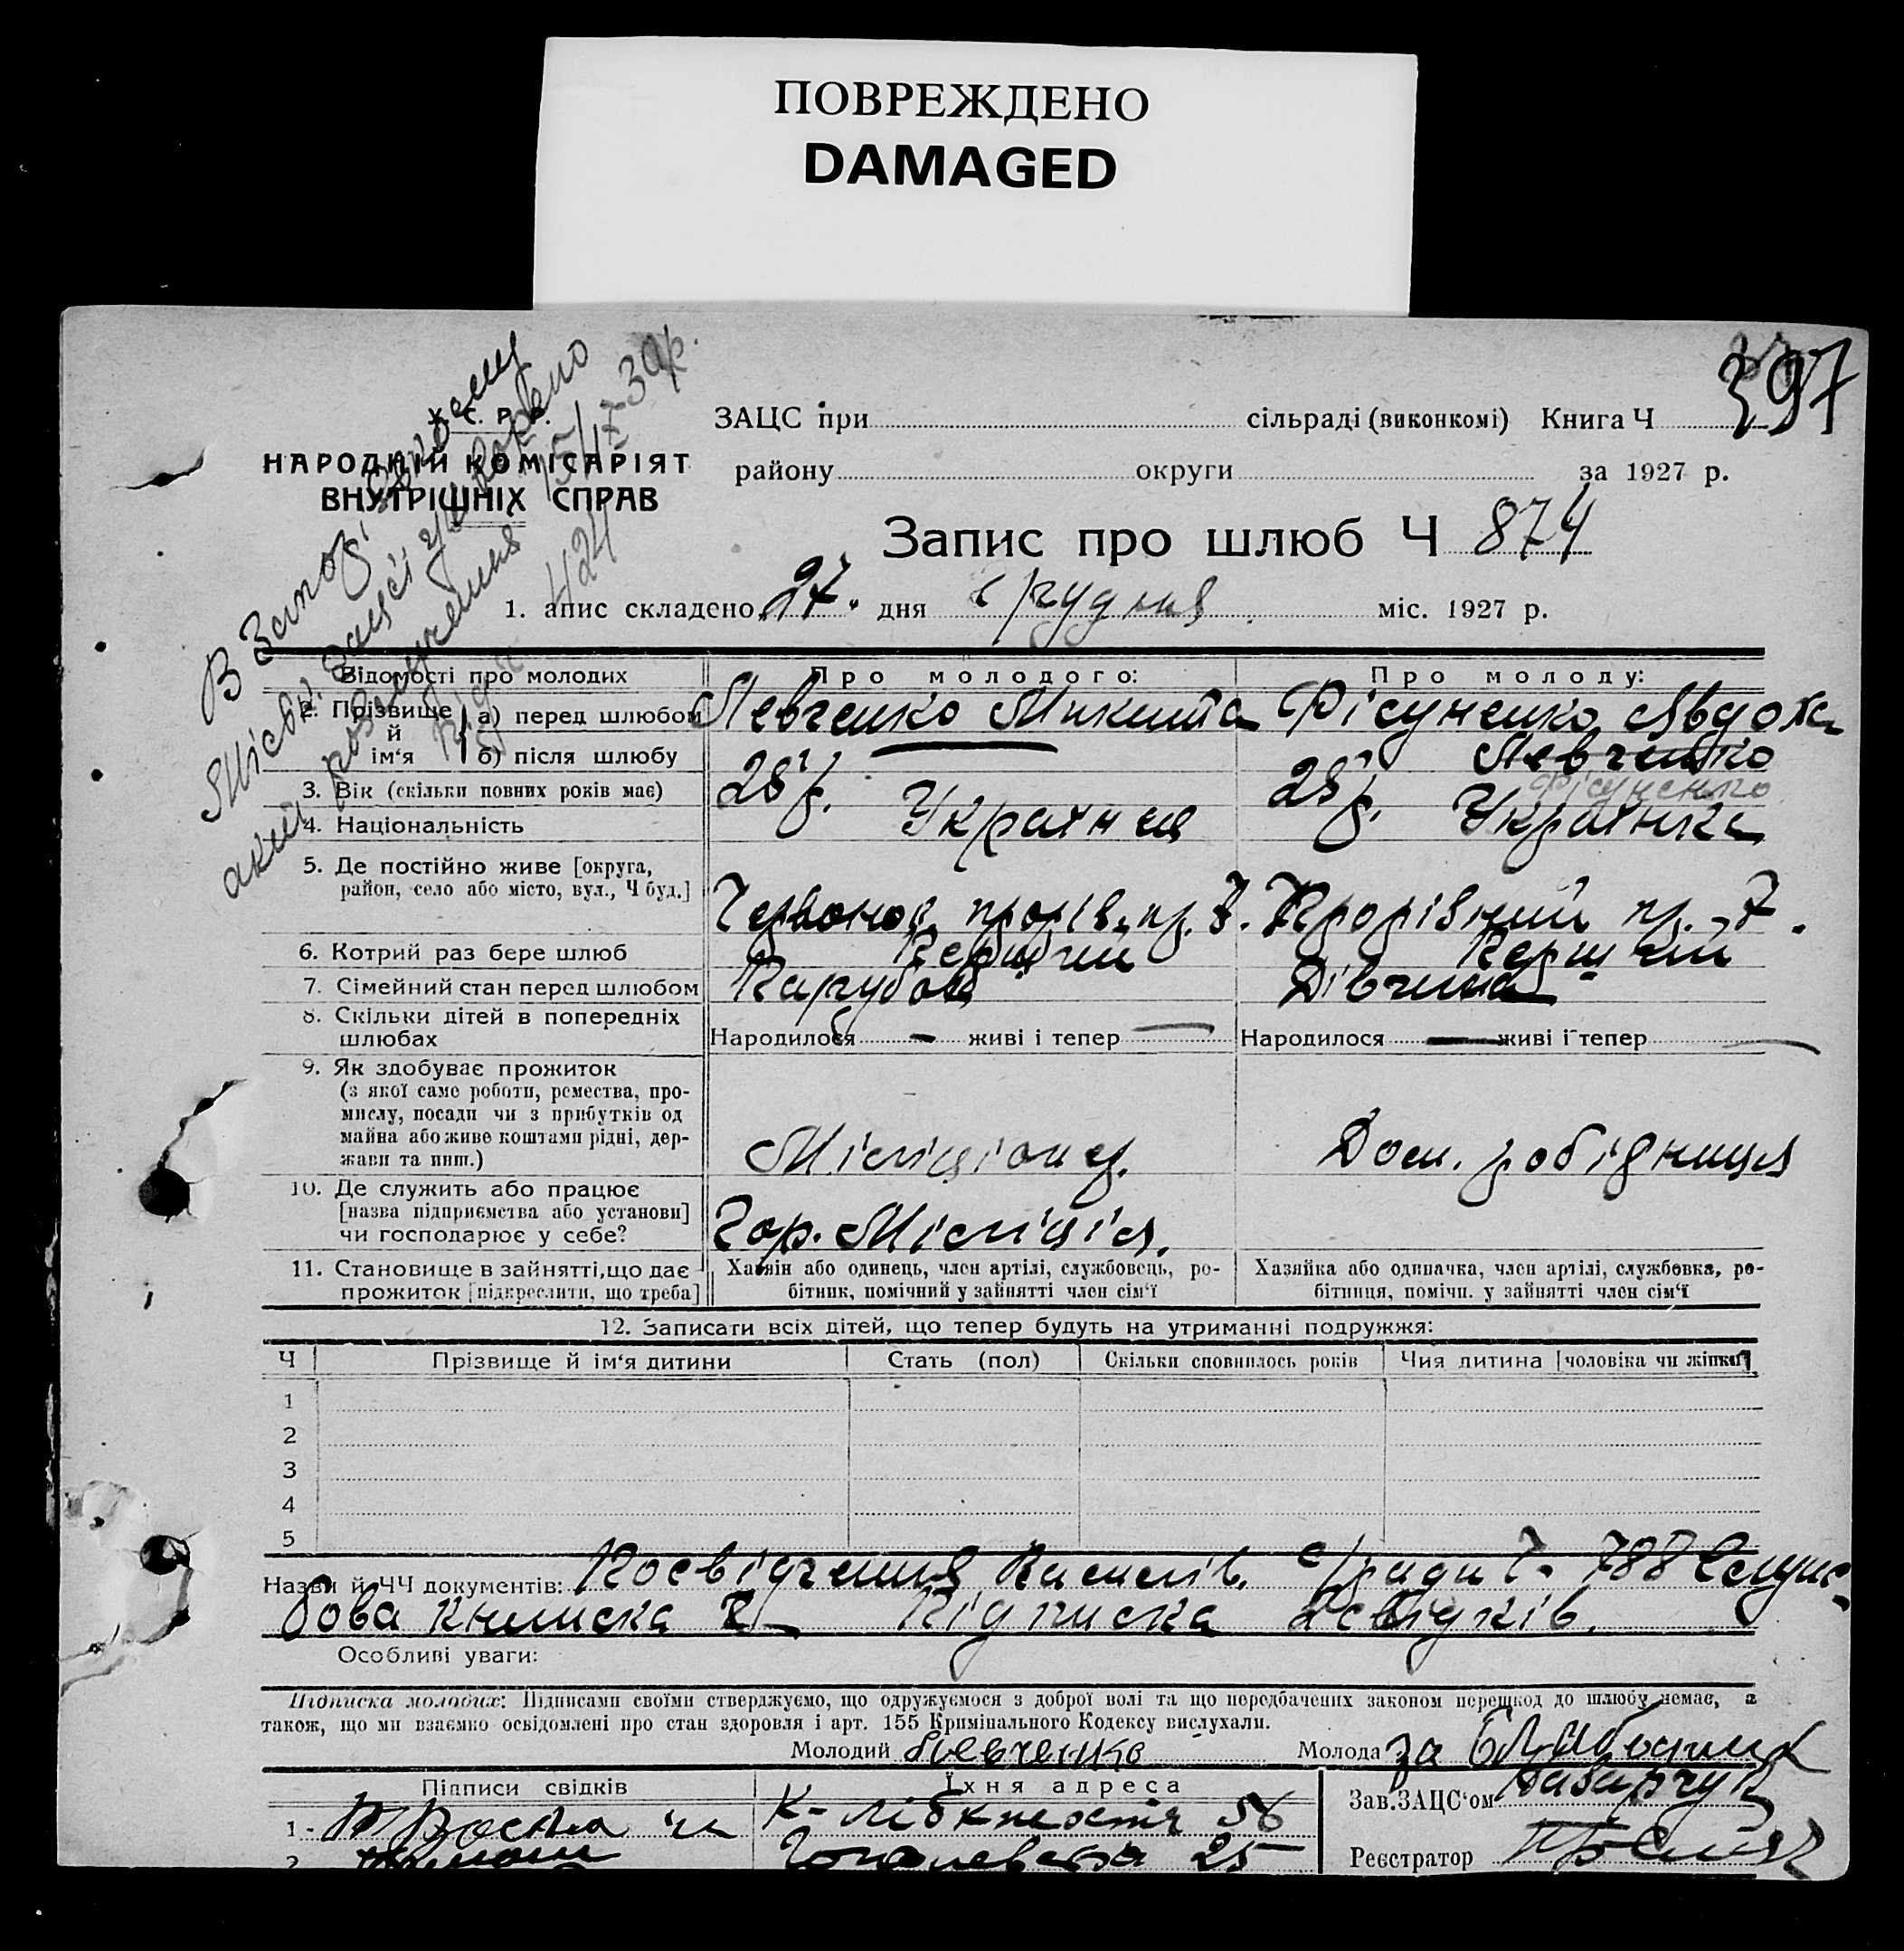 ПОВРЕЖДЕНО
DAMAGED
397
У. С. Р. Р.
НАРОДНІЙ КОМІСАРІЯТ
ВНУТРІШНІХ СПРАВ
ЗАЦС при сільраді (виконкомі) Книга Ч
району округи за 1927 р.
Запис про шлюб Ч 874
1. апис складено 27. дня грудня міс. 1927 р.
В Запоріз.
Міськ. Зацсі утворено
акт розлучення 15/IX 30 р.
під ч 424
Відомості про молодих Про молодого: Про молоду:
2. Прізвище й ім‘я а) перед шлюбом Левченко Микита Фісуненко Явдоха
б) після шлюбу Левченко
Фісуненко
3. Вік (скільки повних років має) 28 р. 28 р.
4. Національність Українец Українка
5. Де постійно живе [округа,
район, село або місто, вул., Ч буд.] Червоноз. прорів. пр. 7. Прорівний пр. - 7.
6. Котрий раз бере шлюб Перший Перший
7. Сімейний стан перед шлюбом Парубок Дівчина
8. Скільки дітей в попередніх
шлюбах Народилося — живі і тепер — Народилося — живі і тепер —
9. Як здобуває прожиток
(з якої саме роботи, ремества, про-
мислу, посади чи з прибутків од
майна або живе коштами рідні, дер-
жави та инш.) Міліціонер. Дом. робідниця
10. Де служить або працює
[назва підприємства або установи]
чи господарює у себе? Гор. Міліція.
11. Становище в зайнятті, що дає
прожиток [підкреслити, що треба]
Хазяін або одинець, член артілі, службовець, ро-
бітник, помічний у зайнятті член сім‘ї
Хазяйка або одиначка, член артілі, службовка, ро-
бітниця, помічн. у зайнятті член сім‘ї
12. Записати всіх дітей, що тепер будуть на утриманні подружжя:
Ч Прізвище й ім‘я дитини Стать (пол) Скільки сповнилось років Чия дитина [чоловіка чи жінки]
1
2
3
4
5
Назви й ЧЧ документів: Посвідчення с/ради Ч- 788 Служ-
бова книжка Підписка 2 свідків.
Особливі уваги:
Підписка молодих: Підписами своїми стверджуємо, що одружуємося з доброї волі та що передбачених законом перешкод до шлюбу немає, а
також, що ми взаємно освідомлені про стан здоровля і арт. 155 Кримінального Кодексу вислухали.
Молодий Левченко Молода за
Підписи свідків Їхня адреса
1 - К-Лібкнехта 56
2 25
Зав. ЗАЦС‘ом
Реєстратор